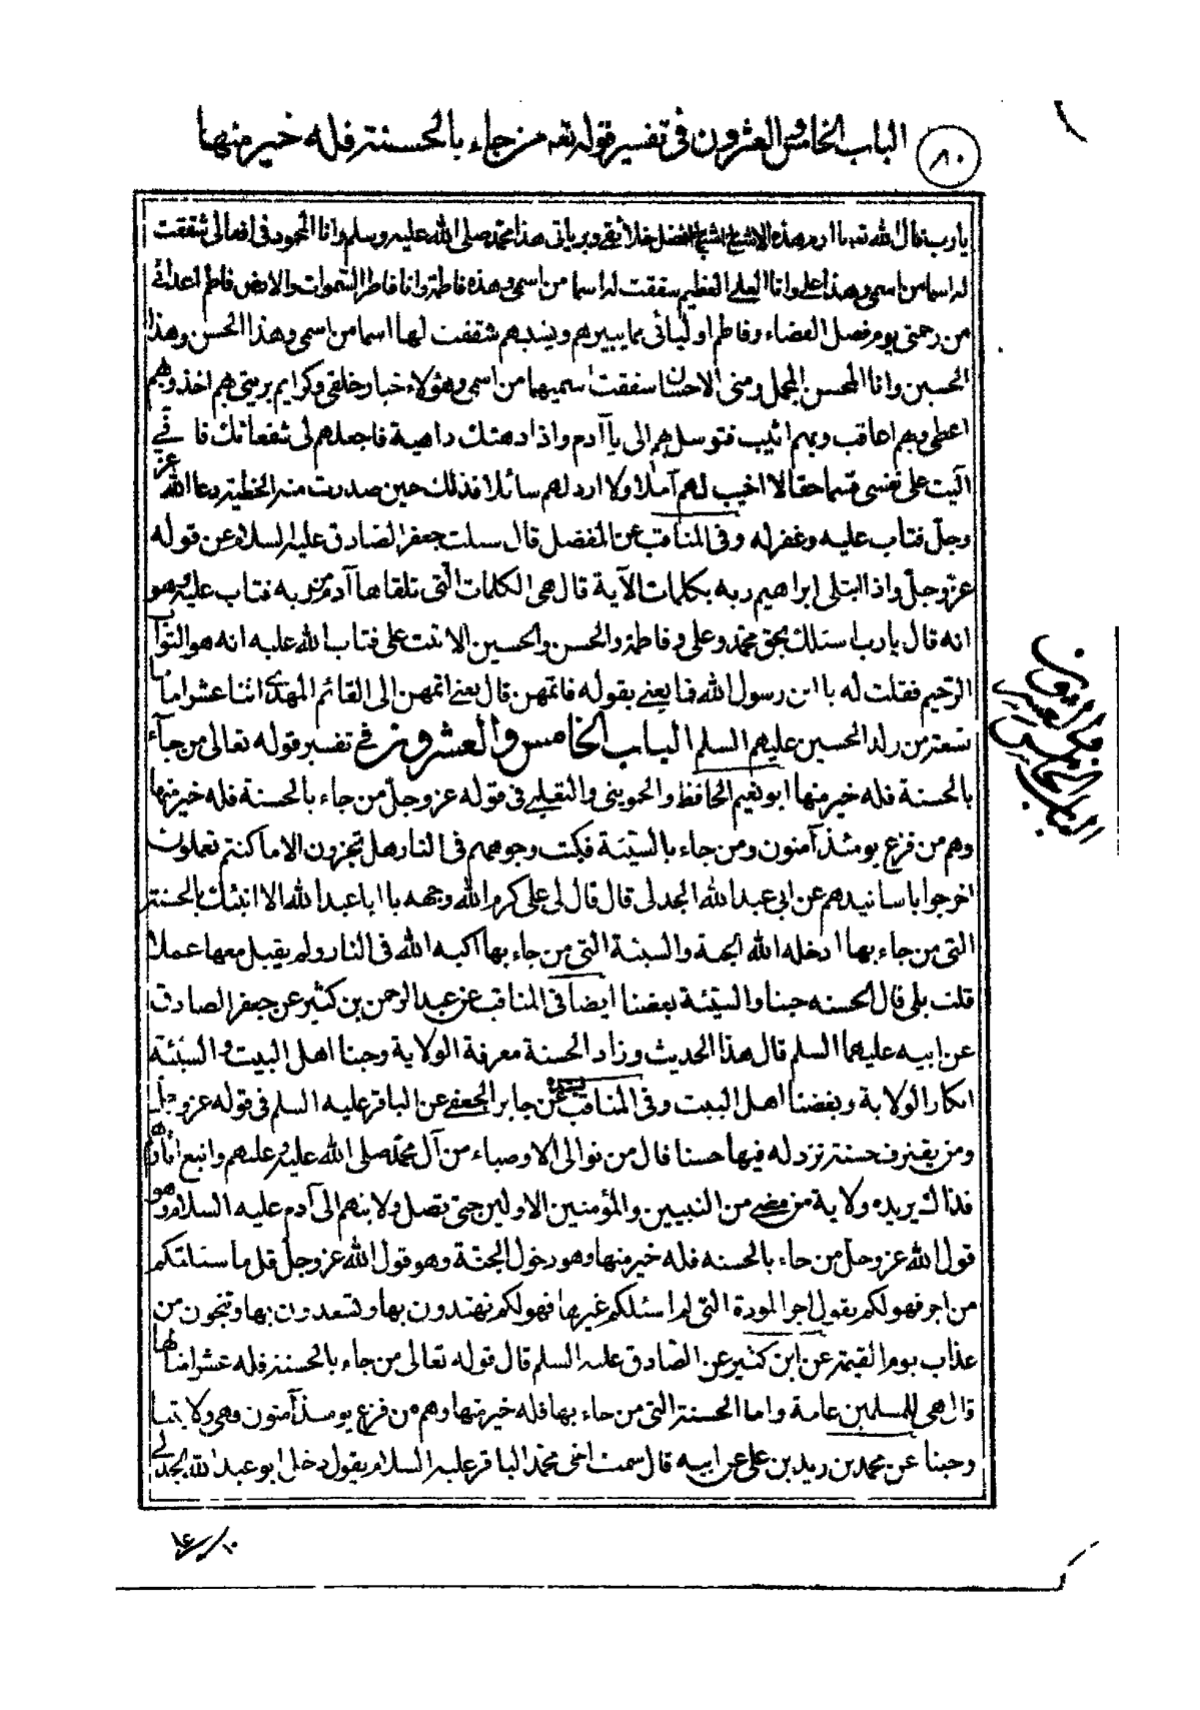 الباب الخامس والعشرون فى تفسير قوله تعه من جاء بالحسنة فله خير منها
٨٠
يا رب قال الله تعه يا ادم هذه الاشباح افضل خلائقى وبرياتى هذا محمد صلى الله عليه وسلم وانا المحمود فى افعالى شققت
له اسما من اسمى وهذا على وانا العلى العظيم شققت له اسما من اسمى وهذه فاطمة وانا فاطر السموات والارض فاطم اعدائى
من رحمتى يوم فصل القضاء وفاطم اوليائى مما يبيرهم ويشينهم شققت لها اسما من اسمى وهذا الحسن وهذا
الحسين وانا المحسن المجمل ومنى الاحسان شققت اسميهما من اسمى وهؤلاء خيار خلقى وكرايم بريتى بهم اخذ وبهم
اعطى وبهم اعاقب وبهم اثيب فتوسل بهم الى يا آدم واذا دهتك داهية فاجعلهم لى شفعائك فانى
آليت على نفسى قسما حقا لا اخيب لهم آملا ولا ارد لهم سائلا فذلك حين صدرت منه الخطيئة دعا الله عز
وجل فتاب عليه وغفر له وفى المناقب عن المفضل قال سئلت جعفر الصادق عليه السلام عن قوله
عز وجل واذ ابتلى ابراهيم ربه بكلمات الآية قال هى الكلمات التى تلقاها آدم من ربه فتاب عليه وهو
انه قال يا رب اسئلك بحق محمد وعلى وفاطمة والحسن والحسين الا تبت على فتاب الله عليه انه هو التواب
الرحيم فقلت له يا ابن رسول الله فما يعنى بقوله فاتمهن قال يعنى اتمهن الى القائم المهدى اثنا عشر اماما
تسعة من ولد الحسين عليهم السلم الباب الخامس والعشرون فى تفسير قوله تعالى من جآء
بالحسنة فله خير منها ابو نعيم الحافظ والحموينى والثعلبى فى قوله عز وجل من جاء بالحسنة فله خير منها
وهم من فزع يومئذ آمنون ومن جاء بالسيئة فكبت وجوههم فى النار هل تجزون الا ما كنتم تعملون
اخرجوا باسانيدهم عن ابى عبد الله الجدلى قال قال لى على كرم الله وجهه يا ابا عبد الله الا انبئك بالحسنة
التى من جاء بها ادخله الله الجنة والسيئة التى من جاء بها اكبه الله فى النار ولم يقبل معها عملا
قلت بلى قال الحسنه حبنا والسيئة بغضنا ايضا فى المناقب عن عبد الرحمن بن كثير عن جعفر الصادق
عن ابيه عليهما السلم قال هذا الحديث وزاد الحسنة معرفة الولاية وحبنا اهل البيت والسيئة
انكار الولاية وبغضنا اهل البيت وفى المناقب بسنده عن جابر الجعفى عن الباقر عليه السلم فى قوله عز وجل
ومن يقترف حسنة نزد له فيها حسنا قال من توالى الاوصياء من آل محمد صلى الله عليه وعليهم واتبع اثارهم
فذاك يزيده ولاية من مضى من النبيين والمؤمنين الاولين حتى تصل ولايتهم الى آدم عليه السلام وهو
قول الله عز وجل من جاء بالحسنه فله خير منها وهو دخول الجنة وهو قول الله عز وجل قل ما سئلتكم
من اجر فهو لكم يقول اجر المودة التى لم اسئلكم غيرها فهو لكم تهتدون بها وتسعدون بها وتنجون من
عذاب يوم القيمة عن ابن كثير عن الصادق عليه السلم قال قوله تعالى من جاء بالحسنة فله عشر امثالها
قال هى للمسلمين عامة واما الحسنة التى من جاء بها فله خير منها وهم من فزع يومئذ آمنون وهى ولايتنا
وحبنا عن محمد بن زيد بن على عن ابيه قال سمعت اخى محمد الباقر عليه السلام يقول دخل ابو عبد الله الجدلى
الباب الخامس والعشرون